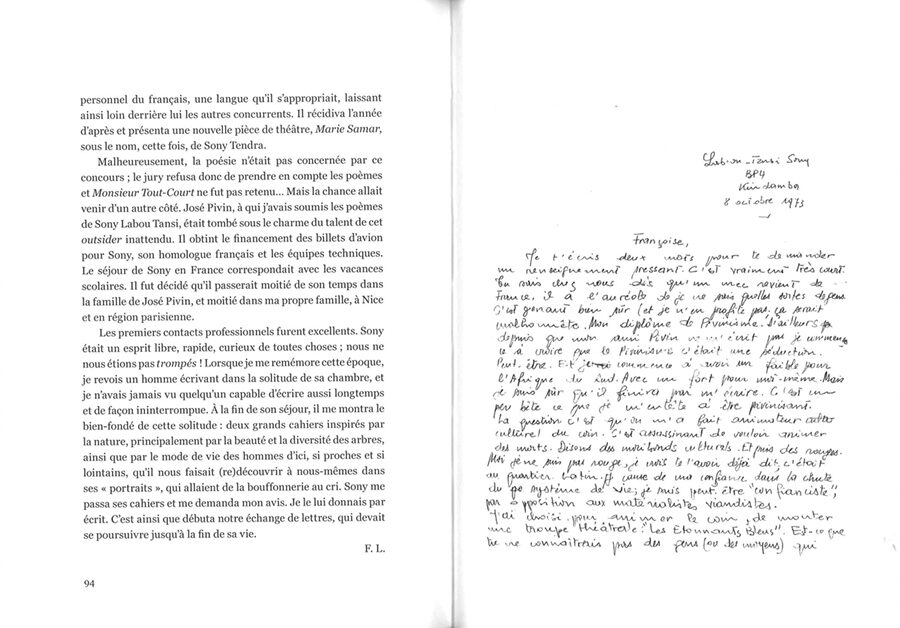 personnel du français, une langue qu'il s'appropriait, laissant
ainsi loin derrière lui les autres concurrents. Il récidiva l'année
d'après et présenta une nouvelle pièce de théâtre, Marie Samar,
sous le nom, cette fois, de Sony Tendra.
Malheureusement, la poésie n'était pas concernée par ce
concours ; le jury refusa donc de prendre en compte les poèmes
et Monsieur Tout-Court ne fut pas retenu... Mais la chance allait
venir d'un autre côté. José Pivin, à qui j'avais soumis les poèmes
de Sony Labou Tansi, était tombé sous le charme du talent de cet
outsider inattendu. Il obtint le financement des billets d'avion
pour Sony, son homologue français et les équipes techniques.
Le séjour de Sony en France correspondait avec les vacances
scolaires. Il fut décidé qu'il passerait moitié de son temps dans
la famille de José Pivin, et moitié dans ma propre famille, à Nice
et en région parisienne.
Les premiers contacts professionnels furent excellents. Sony
était un esprit libre, rapide, curieux de toutes choses ; nous ne
nous étions pas trompés ! Lorsque je me remémore cette époque,
je revois un homme écrivant dans la solitude de sa chambre, et
je n'avais jamais vu quelqu'un capable d'écrire aussi longtemps
et de façon ininterrompue. À la fin de son séjour, il me montra le
bien-fondé de cette solitude : deux grands cahiers inspirés par
la nature, principalement par la beauté et la diversité des arbres,
ainsi que par le mode de vie des hommes d'ici, si proches et si
lointains, qu'il nous faisait (re)découvrir à nous-mêmes dans
ses « portraits », qui allaient de la bouffonnerie au cri. Sony me
passa ses cahiers et me demanda mon avis. Je le lui donnais par
écrit. C'est ainsi que débuta notre échange de lettres, qui devait
se poursuivre jusqu'à la fin de sa vie.
F. L.
94
Tansi Sony
BP4
Kindamba
8 octobre 1973
Françoise,
Je t'écris deux mots pour te demander
un renseignement pressant. C'est vraiment très court.
Tu sais chez nous dès qu'un mec revient de
France, il a l'auréole de je ne sais quelles sortes de
C'est gênant bien sûr (et je n'en profite pas, ça serait
malhonnête. Mon diplôme de Pivinisme. D'ailleurs
depuis que mon ami Pivin ne m'écrit pas je commen
ce à croire que le Pivinisme c'était une séduction.
Peut-être. Et je commence à avoir un faible pour
l'Afrique du Sud. Avec un fort pour moi-même. Mais
je suis sûr qu'il finira par m'écrire. C'est un
peu bête ce que je m'entête à être pivinisant.
La question c'est qu'on m'a fait animateur
culturel du coin. C'est assassinant de vouloir animer
des morts. Disons des moribonds culturels. Et puis des rouges.
Moi je ne suis pas rouge, je crois te l'avoir déjà dit, c'était
au quartier Latin. À cause de ma confiance dans la chute
du système de vie, je suis peut-être "confianciste",
par opposition aux matérialistes viandistes.
J'ai choisi pour animer le coin, de monter
une troupe théâtrale: "Les Étonnants Bleus". Est-ce que
tu ne connaîtrais pas des gens (ou des moyens) qui